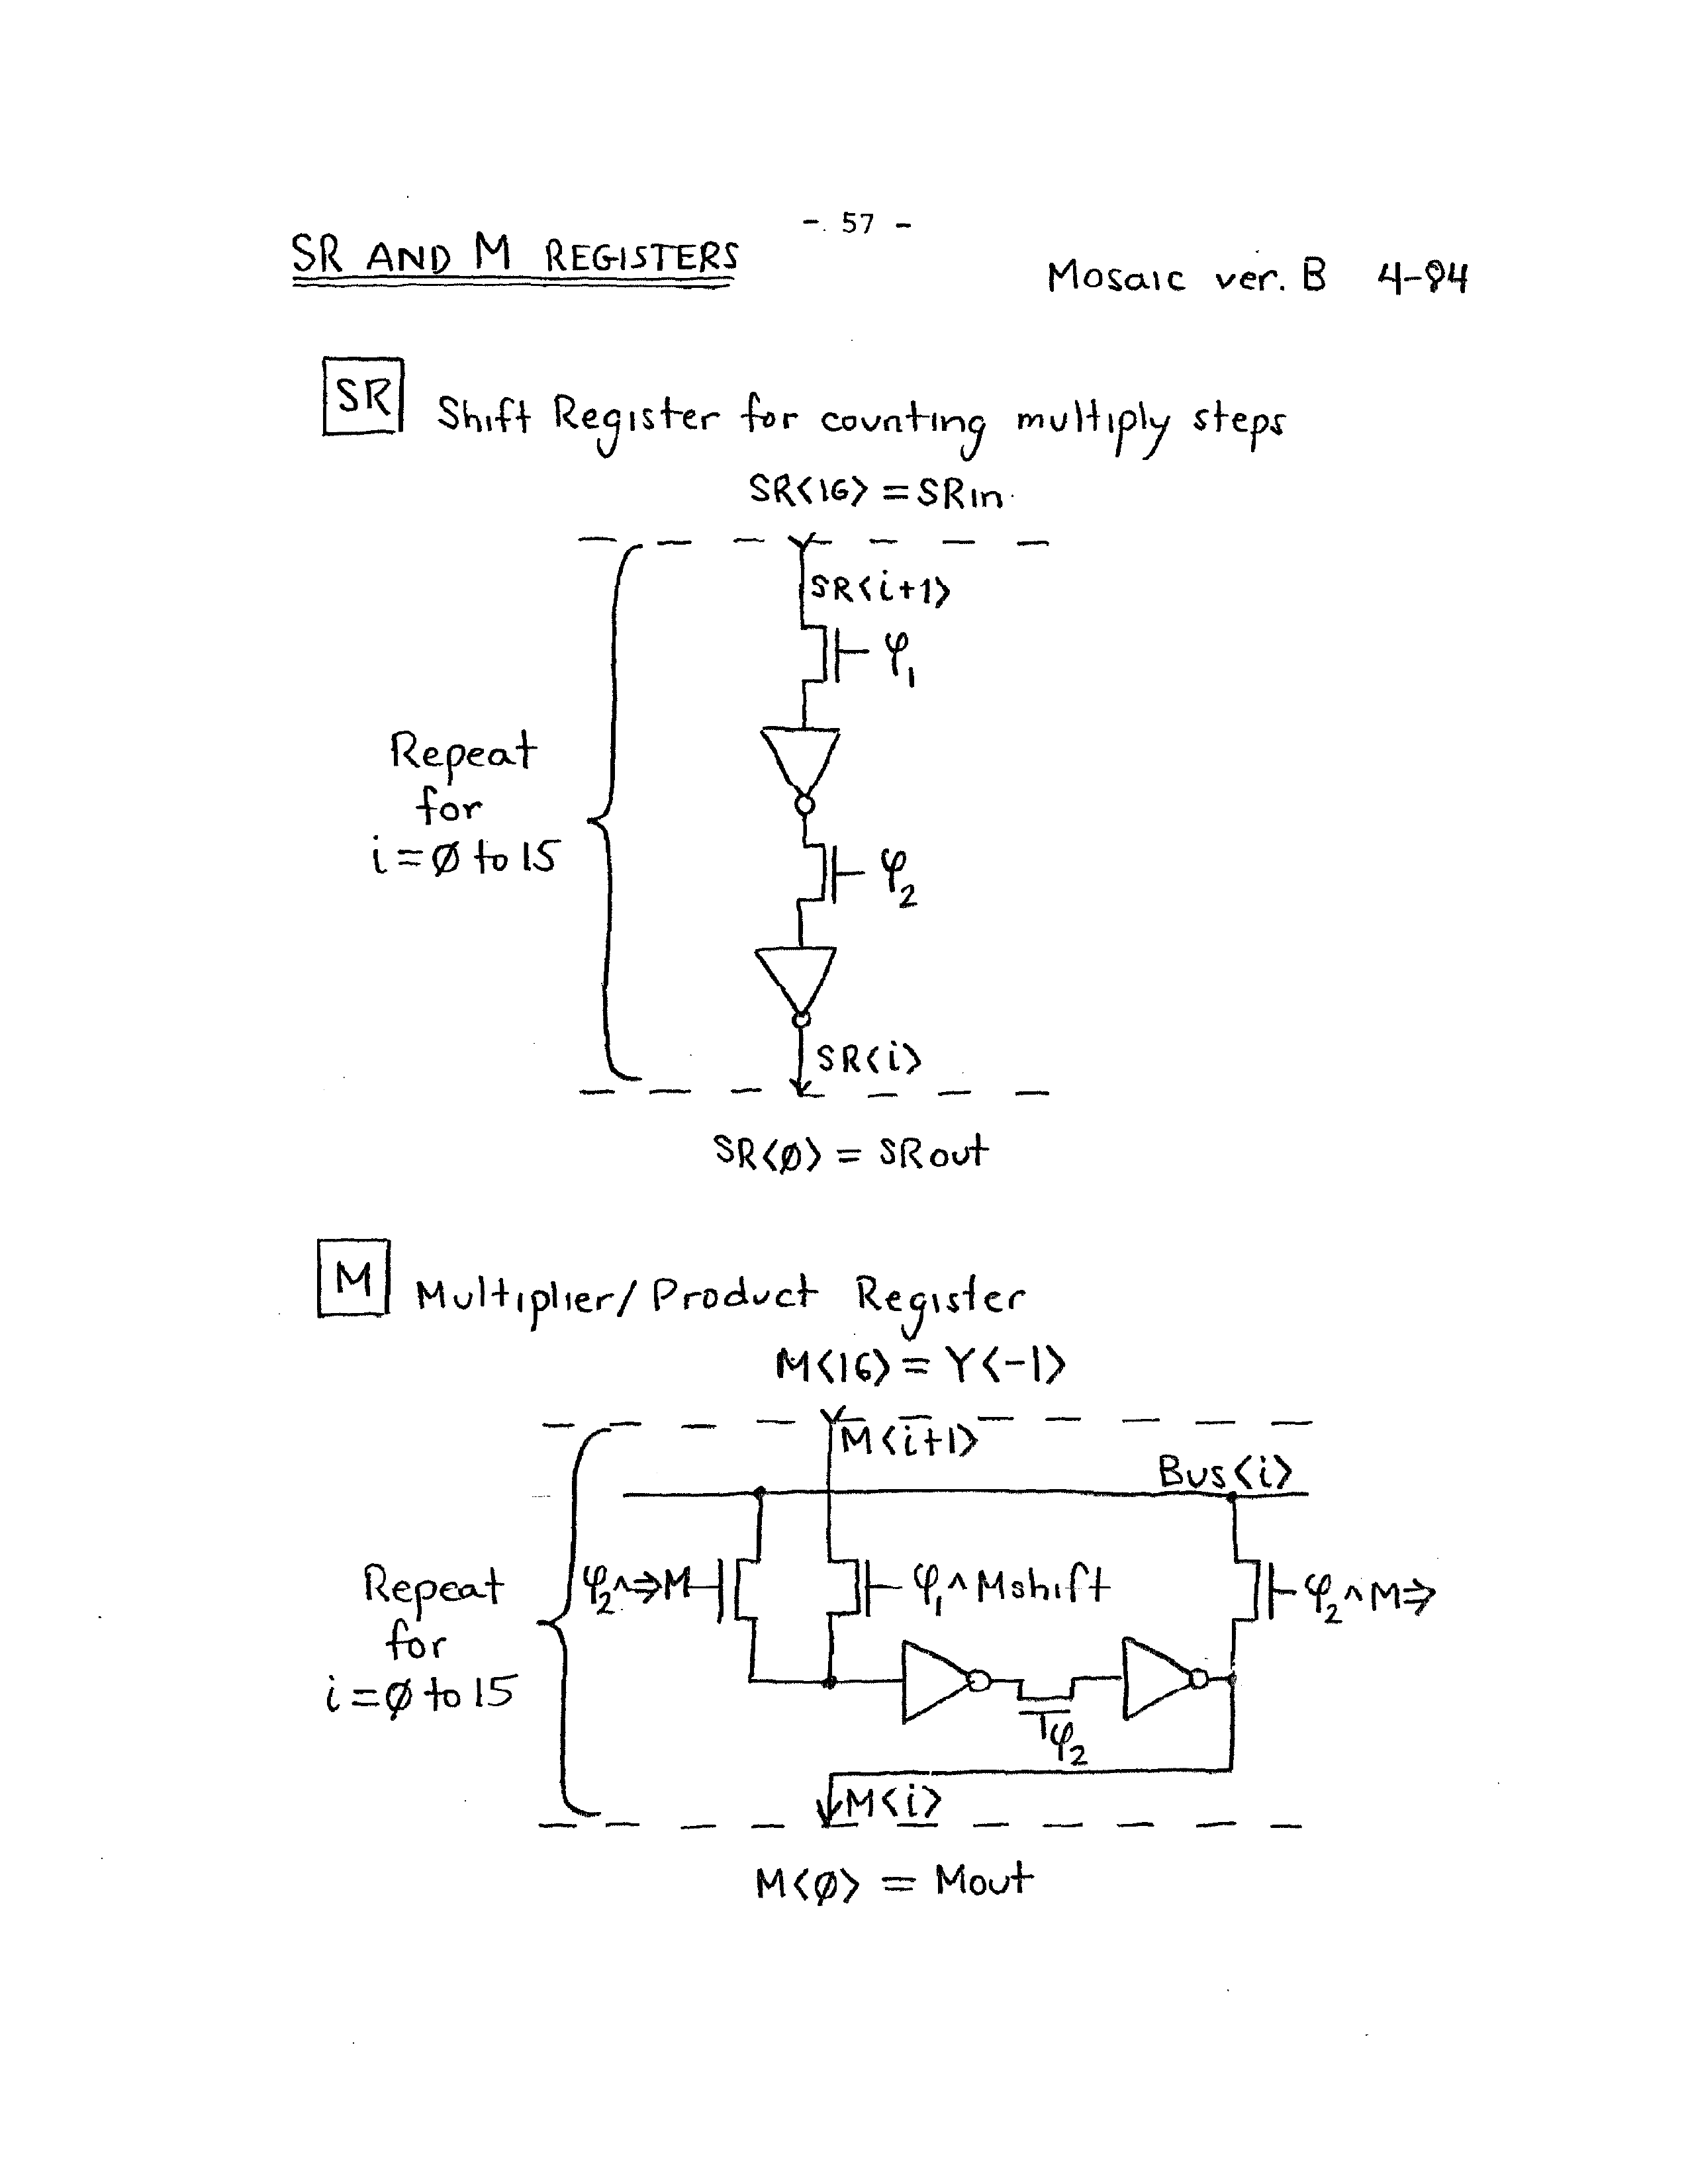 -. 57 -
SR AND M REGISTERS
Mosaic ver. B 4-84
SR Shift Register for counting multiply steps
SR<16> = SRin
SR<i+1>
φ1
Repeat
for
i=Ø to 15
φ2
SR<i>
SR<Ø> = SRout
M Multiplier/Product Register
M<16> = Y<-1>
M<i+1>
Bus<i>
Repeat
for
i=Ø to 15
φ2∧⇒M
φ1∧Mshift
φ2∧M⇒
φ2
M<i>
M<Ø> = Mout